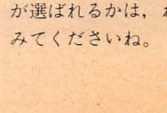 が選ばれるかは，
みてくださいね。